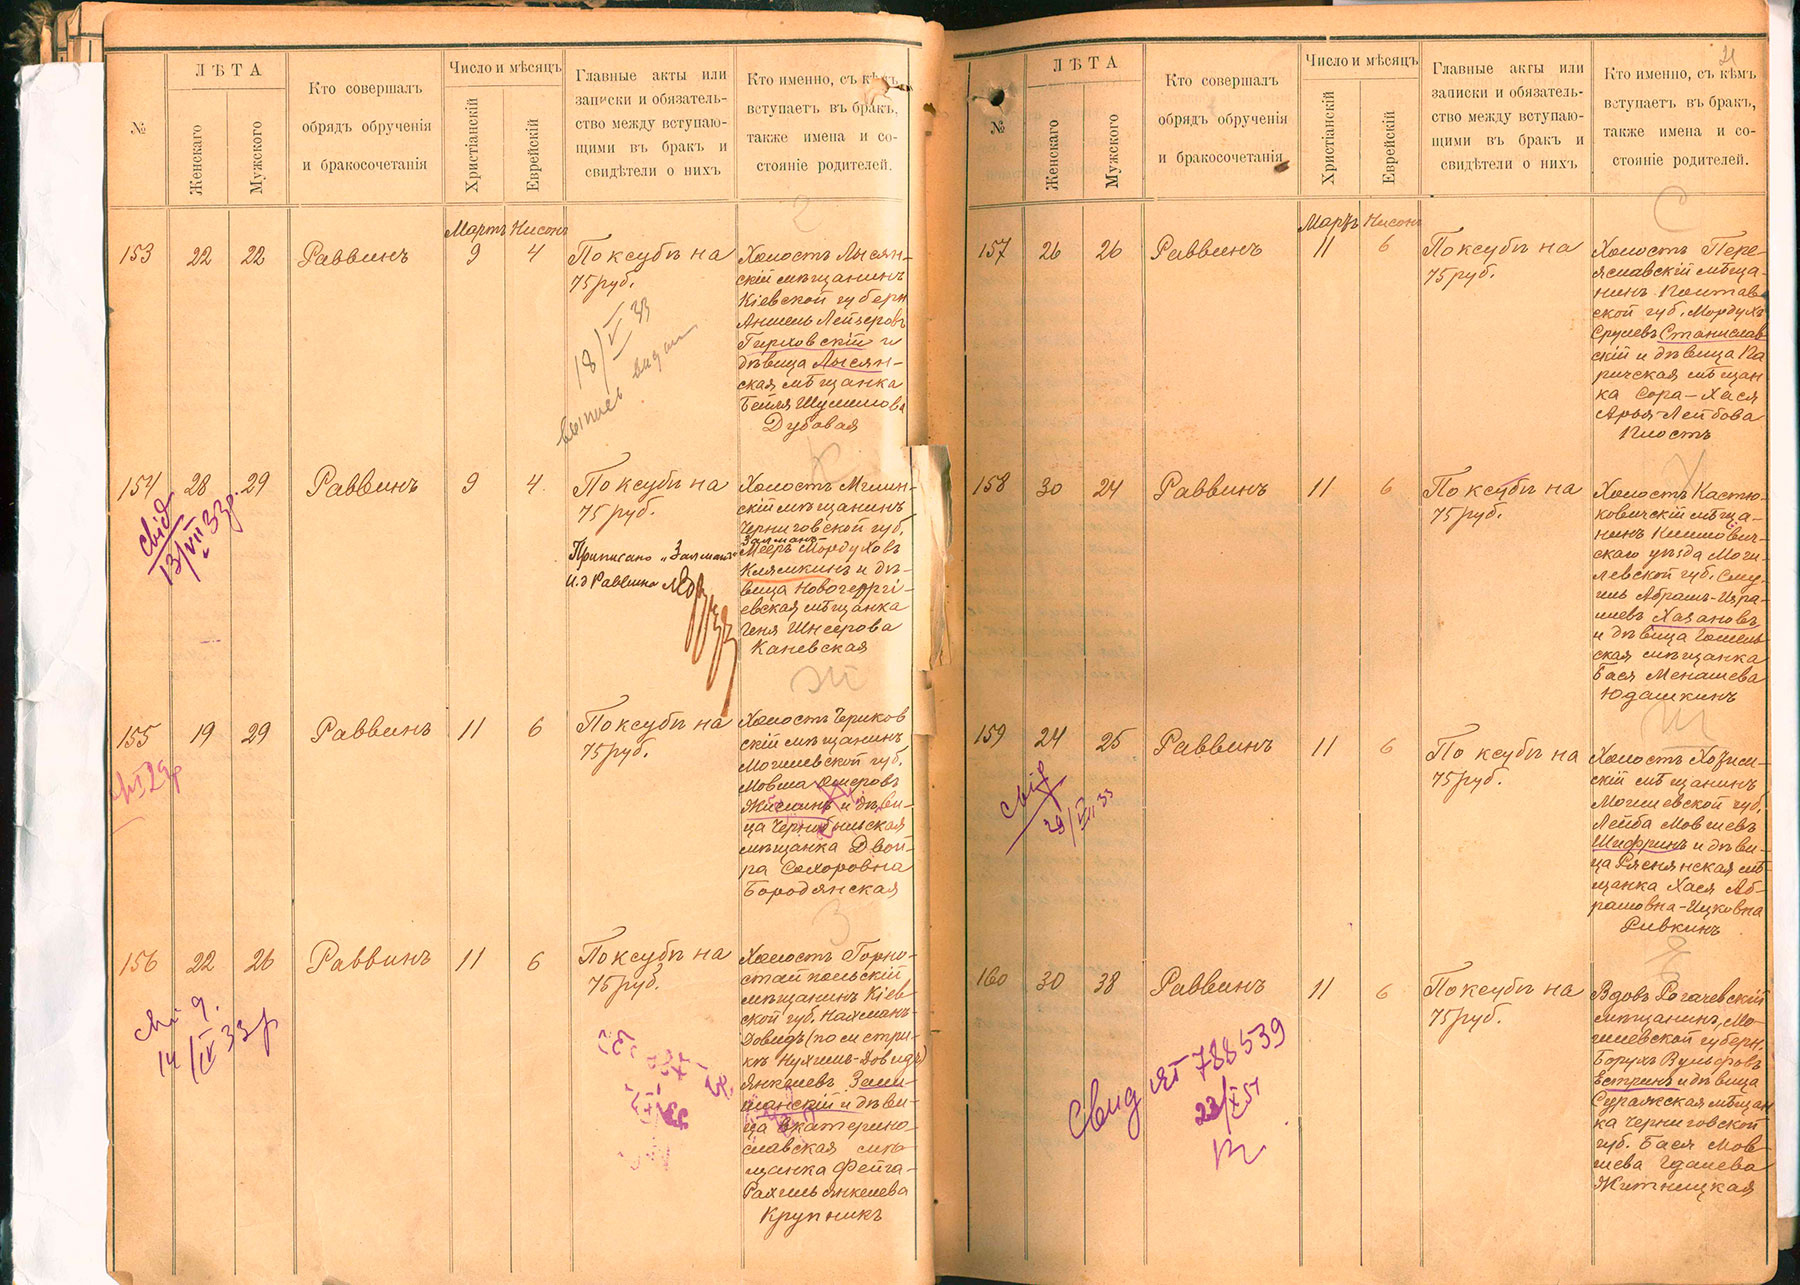 №
ЛѢТА
Женскаго
Мужского
Кто совершалъ
обрядъ обрученія
и бракосочетанія
Число и мѣсяцъ
Христіанскій
Еврейскій
Главные акты или
записки и обязатель-
ство между вступаю-
щими въ бракъ и
свидѣтели о нихъ
Кто именно, съ кѣмъ
вступаетъ въ бракъ,
также имена и со-
стояніе родителей.
Мартъ Нисонъ
153 22 22 Раввинъ 9 4
По ксубѣ на
75 руб.
18/V 33
выпись видан
Холостъ Лысян-
скій мѣщанинъ
Кіевской губерн
Аншель Лейзеровъ
Гирховскій и
дѣвица Лысян-
ская мѣщанка
Бейля Шулимова
Дубовая
154 28 29 Раввинъ 9 4
свід
13/VII 33р.
По ксубѣ на
75 руб.
Приписано „Залманъ“
И.д Раввина
Холостъ Мглин-
скій мѣщанинъ
Черниговской губ.
Залманъ-
Мееръ Мордуховъ
Клямкинъ и дѣ-
вица Новогеоргі-
евская мѣщанка
Геня Шнеерова
Каневская
155 19 29 Раввинъ 11 6
По ксубѣ на
75 руб.
Холостъ Чериков
скій мѣщанинъ
Могилевской губ.
Мовша Ошеровъ
Жислинъ и дѣви-
ца Чернобыльская
мѣщанка Двой-
ра Сохоровна
Бородянская
156 22 26 Раввинъ 11 6
14/IV 33р
По ксубѣ на
75 руб.
Холостъ Горно-
стайпольскій
мѣщанинъ Кіев
ской губ. Нахманъ-
Довидъ (по метри-
кѣ Нухимъ-Довидъ)
Янкелевъ
и дѣви-
ца Екатерино-
славская мѣ-
щанка Фейга-
Рахиль Янкелева
Крупникъ
№
ЛѢТА
Женскаго
Мужского
Кто совершалъ
обрядъ обрученія
и бракосочетанія
Число и мѣсяцъ
Христіанскій
Еврейскій
Главные акты или
записки и обязатель-
ство между вступаю-
щими въ бракъ и
свидѣтели о нихъ
Кто именно, съ кѣмъ
вступаетъ въ бракъ,
также имена и со-
стояніе родителей.
Мартъ Нисонъ
157 26 26 Раввинъ 11 6
По ксубѣ на
75 руб.
Холостъ Пере-
яславскій мѣща-
нинъ Полтав
ской губ. Мордухъ
Срулевъ Станислав
скій и дѣвица Па
ричская мѣщан
ка Сора-Хася
Арья-Лейбова
Плостъ
158 30 24 Раввинъ 11 6
По ксубѣ на
75 руб.
Холостъ Костю-
ковичскій мѣща-
нинъ Климович-
скаго уѣзда Моги-
левской губ. Сму-
иль Абрамъ-Изра-
илевъ Хазановъ
и дѣвица Гомель
ская мѣщанка
Бася Менашева
Юдашкинъ
159 24 25 Раввинъ 11 6
свід
29/VII 33
По ксубѣ на
75 руб.
Холостъ
скій мѣщанинъ
Могилевской губ.
Лейба Мовшевъ
Шифринъ и дѣви-
ца Ряснянская мѣ-
щанка Хася Аб-
рамовна-Ицковна
Ривкинъ
160 30 38 Раввинъ 11 6
По ксубѣ на
75 руб.
Свид ЯТ 788539
23/X 51
Вдовъ Рогачевскій
мѣщанинъ, Мо-
гилевской губерн.
Борухъ Вульфовъ
Естринъ и дѣвица
Суражская мѣщан
ка Черниговской
губ. Бася Мов-
шева Гдалева
Житницкая